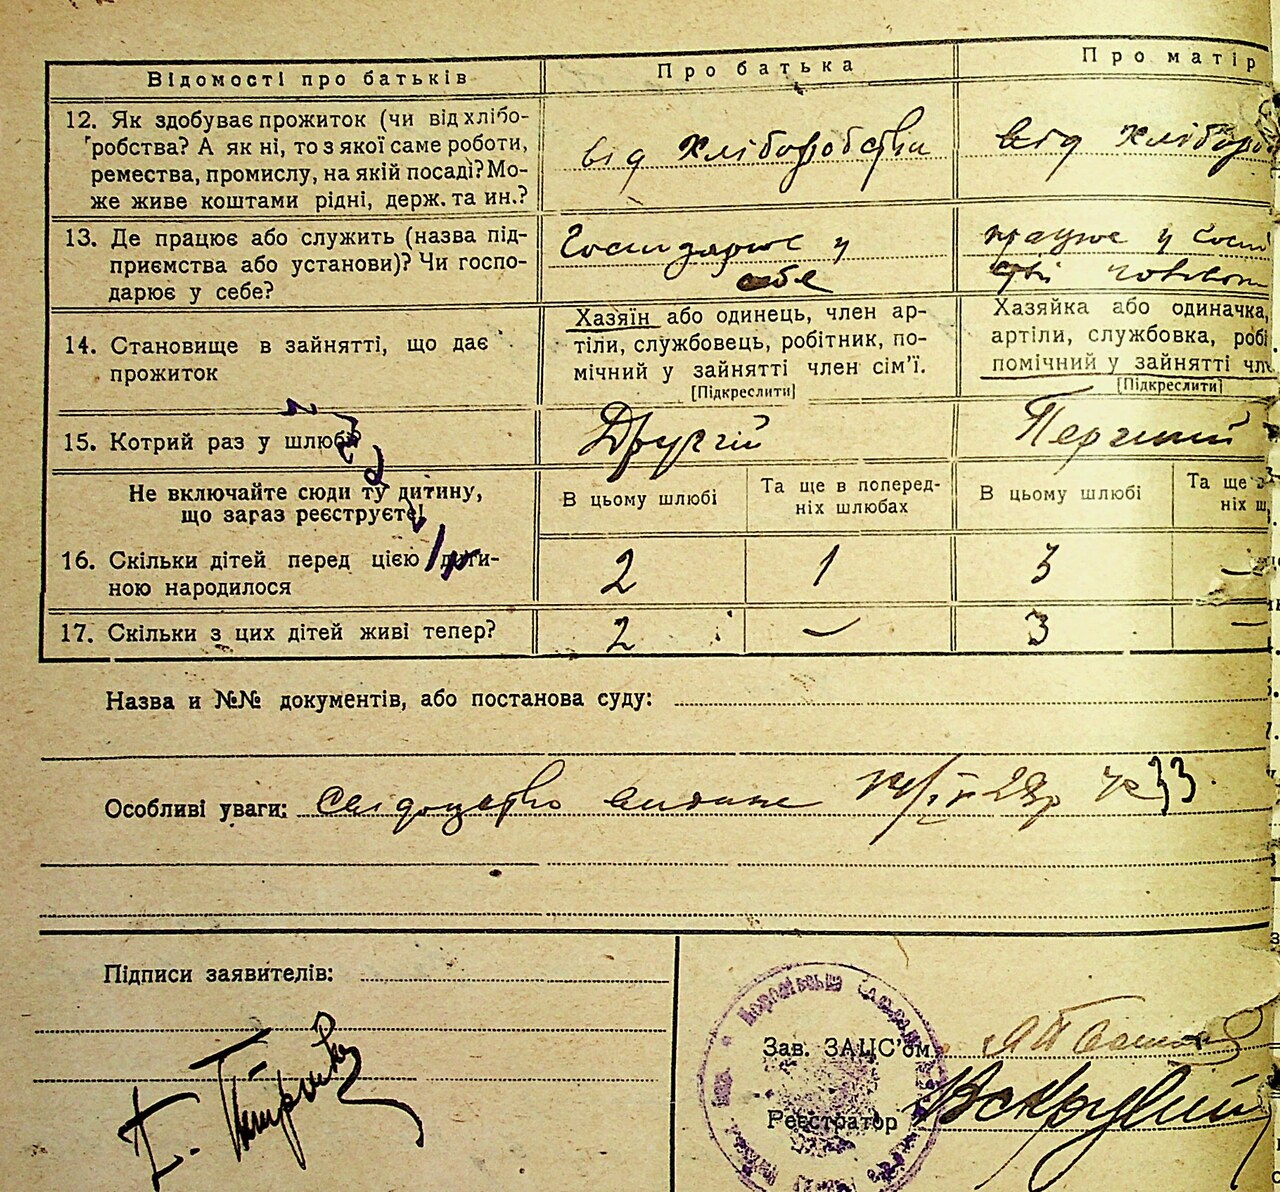 Відомості про батьків
Про батька
Про матір
12. Як здобуває прожиток (чи від хлібо-
робства? А як ні, то з якої саме роботи,
ремества, промислу, на якій посаді? Мо-
же живе коштами рідні, держ. та ин.?
від хліборобства
від хлібороб
13. Де працює або служить (назва під-
приємства або установи)? Чи госпо-
дарює у себе?
Господарює у
себе
працює у госп
14. Становище в зайнятті, що дає
прожиток
Хазяїн або одинець, член ар-
тіли, службовець, робітник, по-
мічний у зайнятті член сім’ї.
[Підкреслити]
Хазяйка або одиначка,
артіли, службовка, робі
помічний у зайнятті чле
[Підкреслити]
15. Котрий раз у шлюбі
Другий
Перший
Не включайте сюди ту дитину,
що зараз реєструєте!
В цьому шлюбі
Та ще в поперед-
ніх шлюбах
В цьому шлюбі
Та ще в
ніх ш
16. Скільки дітей перед цією дити-
ною народилося
2
1
3
—
17. Скільки з цих дітей живі тепер?
2
—
3
—
Назва и №№ документів, або постанова суду:
Особливі уваги: Свідоцтво видане 29р № 33.
Підписи заявителів:
Зав. ЗАЦС’ом
Реєстратор